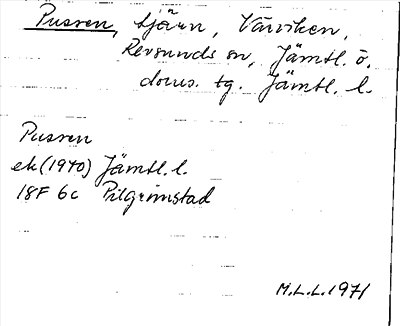 Pussen, tjärn, Varviken,
Revsunds sn, Jämtl. ö.
doms. tg. Jämtl. l.
Pussen
ek (1970) Jämtl. l.
18F 6c Pilgrimstad
M.L.L. 1971